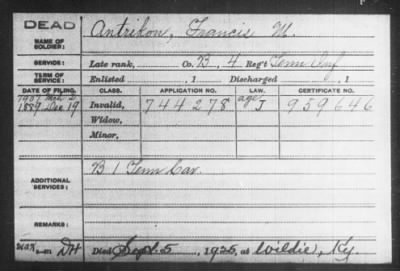 DEAD
NAME OF SOLDIER: Antrikon, Francis M.
SERVICE: Late rank, Co. B, 4 Reg't Tenn Inf
TERM OF SERVICE: Enlisted , 1 Discharged , 1
DATE OF FILING. CLASS. APPLICATION NO. LAW. CERTIFICATE NO.
1907
1889 Dec 19 Invalid, 744278 age J 959646
Widow,
Minor,
ADDITIONAL SERVICES: B 1 Tenn Cav.
REMARKS:
Died Sept. 5, 1925, at Wildie, Ky.